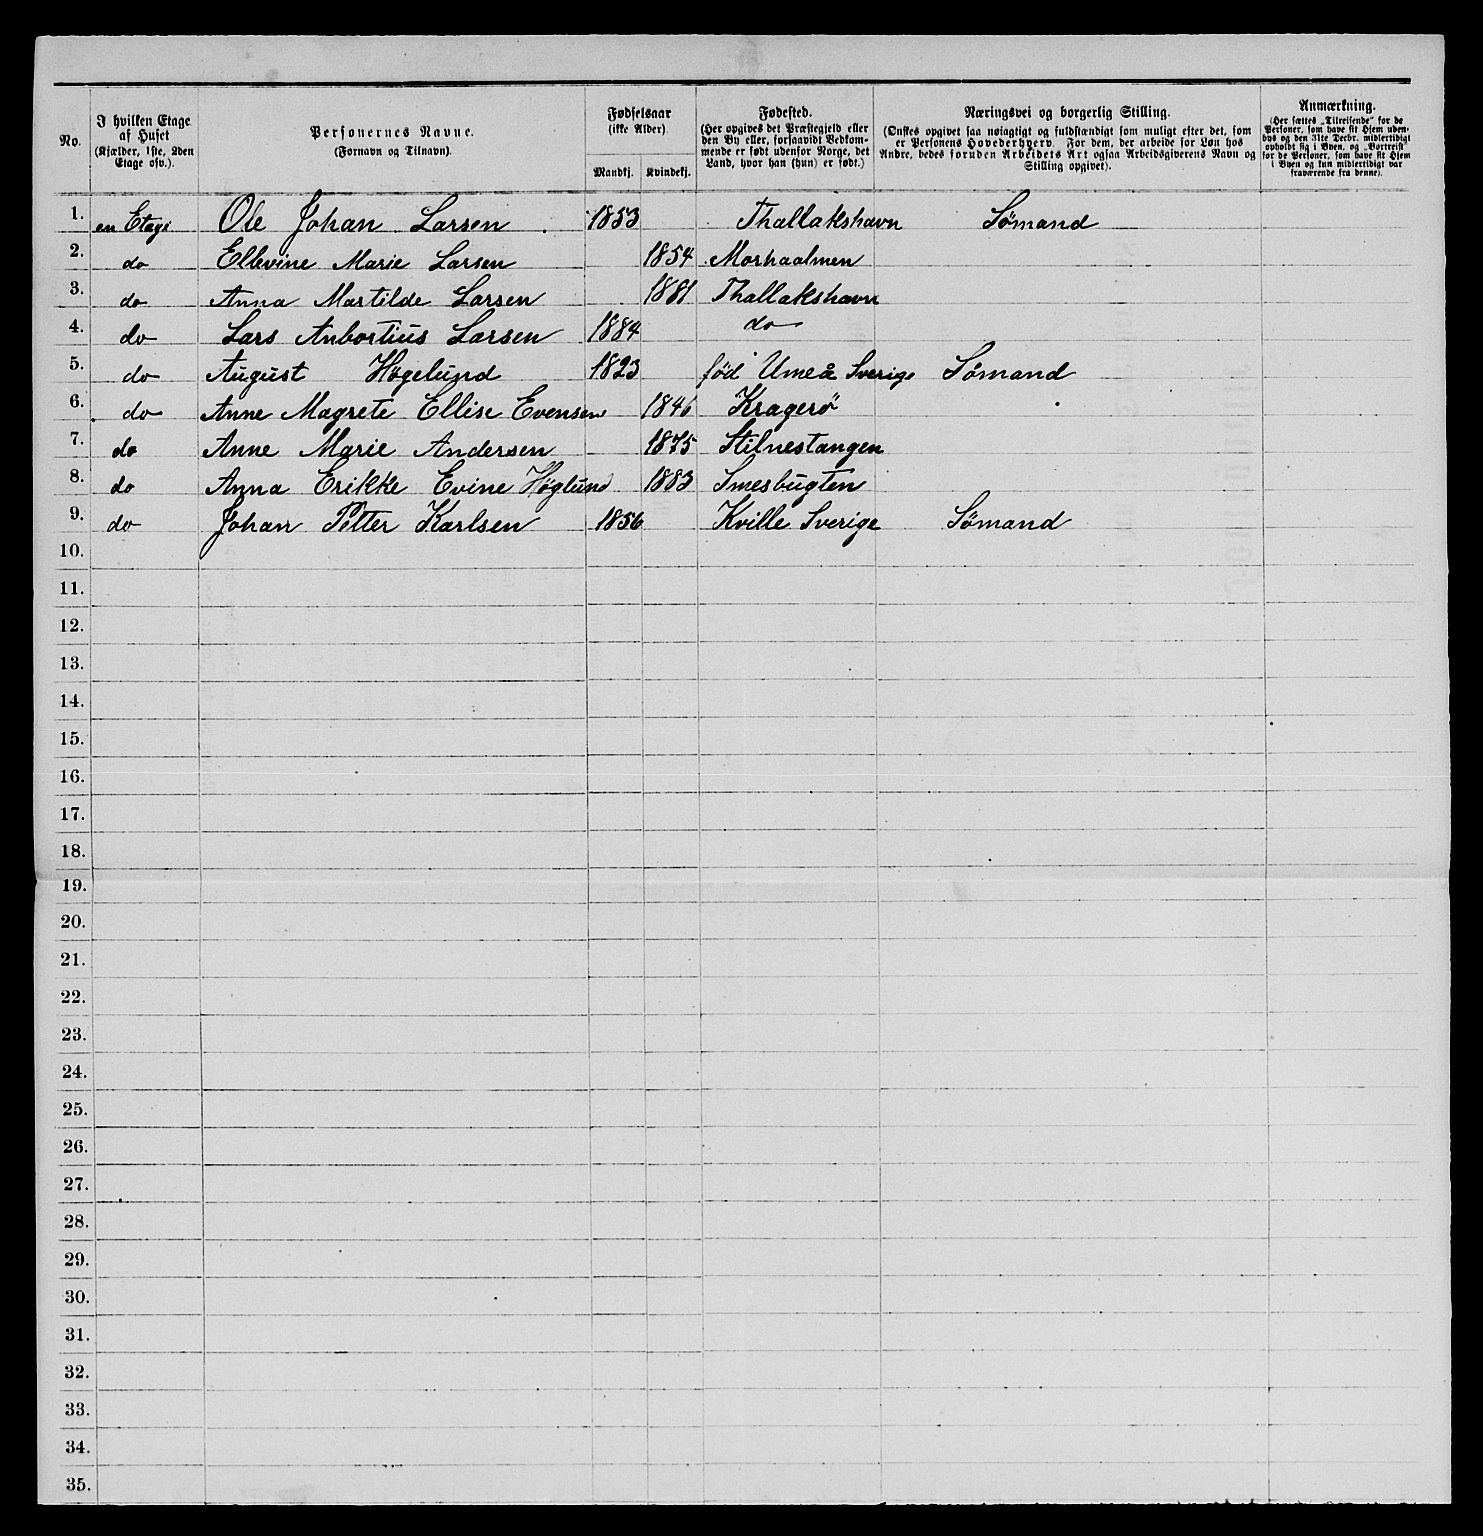 No.
I hvilken Etage
af Huset
(Kjælder, 1ste, 2den
Etage osv.).
Personernes Navne.
(Fornavn og Tilnavn).
Fødselsaar
(ikke Alder).
Mandkj. Kvindekj.
Fødested.
(Her opgives det Præstegjeld eller
den By eller, forsaavidt Vedkom-
mende er født udenfor Norge, det
Land, hvor han (hun) er født.)
Næringsvei og borgerlig Stilling.
(Ønskes opgivet saa nøiagtigt og fuldstændigt som muligt efter det, som
er Personens Hovederhverv. For dem, der arbeide for Løn hos
Andre, bedes foruden Arbeidets Art ogsaa Arbeidsgiverens Navn og
Stilling opgivet).
Anmærkning.
(Her sættes „Tilreisende“ for de
Personer, som have sit Hjem uden-
bys og den 31te Decbr. midlertidigt
opholdt sig i Byen, og „Bortreist“
for de Personer, som have sit Hjem
i Byen og kun midlertidigt var
fraværende fra denne).
1. en Etage Ole Johan Larsen 1853 Thallakshavn Sømand
2. do Ellevine Marie Larsen 1854 Morhaalmen
3. do Anna Martilde Larsen 1881 Thallakshavn
4. do Lars Anbortius Larsen 1884 do
5. do August Høgelund 1823 fød Umeå Sverige Sømand
6. do Anne Magrete Ellise Evensen 1846 Kragerö
7. do Anne Marie Andersen 1875 Stilnestangen
8. do Anna Erikke Evine Høglund 1883 Smesbugten
9. do Johan Petter Karlsen 1856 Kville Sverige Sömand
10.
11.
12.
13.
14.
15.
16.
17.
18.
19.
20.
21.
22.
23.
24.
25.
26.
27.
28.
29.
30.
31.
32.
33.
34.
35.